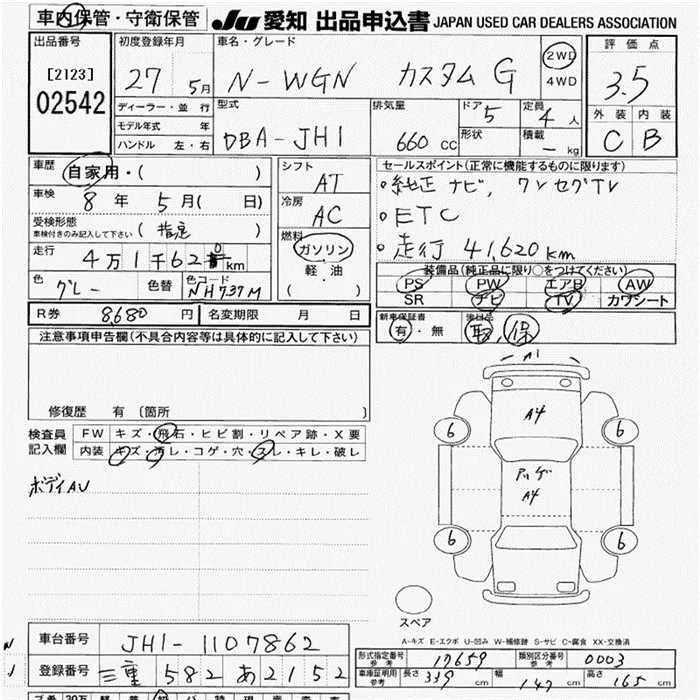 車内保管・守衛保管 JU 愛知 出品申込書 JAPAN USED CAR DEALERS ASSOCIATION
出品番号 初度登録年月 車名・グレード 評価点
[2123] 27 5月 N-WGN カスタム G 2WD 3.5
02542 4WD
ディーラー・並行 型式 排気量 ドア 5 定員 4人 外装 内装
モデル年式 年 DBA-JH1 660cc 形状 積載 - kg C B
ハンドル 左・右
車歴 自家用・( ) シフト AT セールスポイント(正常に機能するものに限ります)
車検 8年 5月( 日) 冷房 AC ・純正ナビ, ワンセグTV
受検形態 車検付きのみ記入して下さい ( 指定 ) 燃料 ・ETC
走行 4万1千620km ガソリン ・走行 41,620km
色 グレー 色替 色コード NH737M 軽・油 ( )
装備品(純正品に限り○をつけてください)
PS PW エアB AW
SR ナビ TV カワシート
R券 8,680円 名変期限 月 日 新車保証書 有・無 後日品 取, 保
注意事項申告欄(不具合内容等は具体的に記入して下さい)
修復歴 有 〔箇所 〕
検査員 FW キズ・飛石・ヒビ割・リペア跡・X要
記入欄 内装 キズ・汚レ・コゲ・穴・スレ・キレ・破レ
ボディAU
A1
A4
6 6
A4
6 6
スペア
A-キズ E-エクボ U-凹み W-補修跡 S-サビ C-腐食 XX-交換済
車台番号 JH1-1107862
登録番号 三重 582 あ 2152
形式指定番号 参考 17659 類別区分番号 参考 0003
車庫証明用 参考 長さ 339cm 幅 147cm 高さ 165cm